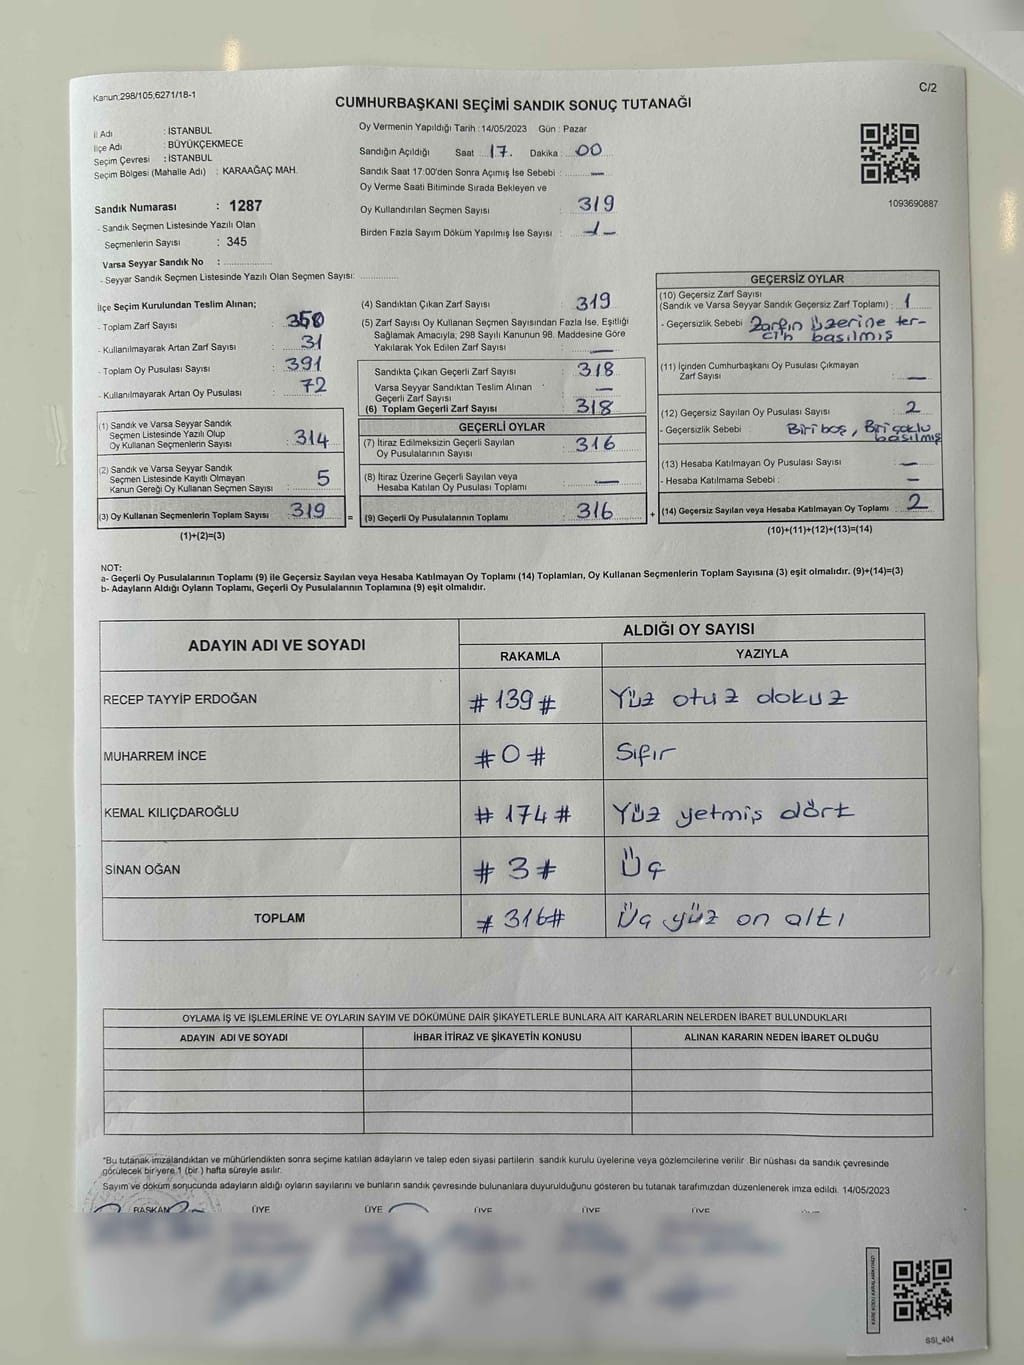 Kanun:298/105,6271/18-1
C/2
CUMHURBAŞKANI SEÇİMİ SANDIK SONUÇ TUTANAĞI
İl Adı : İSTANBUL
İlçe Adı : BÜYÜKÇEKMECE
Seçim Çevresi : İSTANBUL
Seçim Bölgesi (Mahalle Adı) : KARAAĞAÇ MAH.
Sandık Numarası : 1287
- Sandık Seçmen Listesinde Yazılı Olan
Seçmenlerin Sayısı : 345
Varsa Seyyar Sandık No :
- Seyyar Sandık Seçmen Listesinde Yazılı Olan Seçmen Sayısı:
Oy Vermenin Yapıldığı Tarih : 14/05/2023 Gün : Pazar
Sandığın Açıldığı Saat 17. Dakika : 00
Sandık Saat 17:00'den Sonra Açımış İse Sebebi : —
Oy Verme Saati Bitiminde Sırada Bekleyen ve
Oy Kullandırılan Seçmen Sayısı : 319
Birden Fazla Sayım Döküm Yapılmış İse Sayısı : -1-
1093690887
İlçe Seçim Kurulundan Teslim Alınan;
- Toplam Zarf Sayısı : 350
- Kullanılmayarak Artan Zarf Sayısı : 31
- Toplam Oy Pusulası Sayısı : 391
- Kullanılmayarak Artan Oy Pusulası : 72
(1) Sandık ve Varsa Seyyar Sandık
Seçmen Listesinde Yazılı Olup
Oy Kullanan Seçmenlerin Sayısı : 314
(2) Sandık ve Varsa Seyyar Sandık
Seçmen Listesinde Kayıtlı Olmayan
Kanun Gereği Oy Kullanan Seçmen Sayısı : 5
(3) Oy Kullanan Seçmenlerin Toplam Sayısı : 319
(1)+(2)=(3)
=
(4) Sandıktan Çıkan Zarf Sayısı : 319
(5) Zarf Sayısı Oy Kullanan Seçmen Sayısından Fazla İse, Eşitliği
Sağlamak Amacıyla; 298 Sayılı Kanunun 98. Maddesine Göre
Yakılarak Yok Edilen Zarf Sayısı : —
Sandıkta Çıkan Geçerli Zarf Sayısı : 318
Varsa Seyyar Sandıktan Teslim Alınan
Geçerli Zarf Sayısı : —
(6) Toplam Geçerli Zarf Sayısı : 318
GEÇERLİ OYLAR
(7) İtiraz Edilmeksizin Geçerli Sayılan
Oy Pusulalarının Sayısı : 316
(8) İtiraz Üzerine Geçerli Sayılan veya
Hesaba Katılan Oy Pusulası Toplamı : —
(9) Geçerli Oy Pusulalarının Toplamı : 316
+
GEÇERSİZ OYLAR
(10) Geçersiz Zarf Sayısı
(Sandık ve Varsa Seyyar Sandık Geçersiz Zarf Toplamı) : 1
- Geçersizlik Sebebi : Zarfın üzerine ter-
cih basılmış
(11) İçinden Cumhurbaşkanı Oy Pusulası Çıkmayan
Zarf Sayısı : —
(12) Geçersiz Sayılan Oy Pusulası Sayısı : 2
- Geçersizlik Sebebi : Biri boş, Biri çoklu
basılmış
(13) Hesaba Katılmayan Oy Pusulası Sayısı : —
- Hesaba Katılmama Sebebi : —
(14) Geçersiz Sayılan veya Hesaba Katılmayan Oy Toplamı : 2
(10)+(11)+(12)+(13)=(14)
NOT:
a- Geçerli Oy Pusulalarının Toplamı (9) ile Geçersiz Sayılan veya Hesaba Katılmayan Oy Toplamı (14) Toplamları, Oy Kullanan Seçmenlerin Toplam Sayısına (3) eşit olmalıdır. (9)+(14)=(3)
b- Adayların Aldığı Oyların Toplamı, Geçerli Oy Pusulalarının Toplamına (9) eşit olmalıdır.
ADAYIN ADI VE SOYADI
ALDIĞI OY SAYISI
RAKAMLA YAZIYLA
RECEP TAYYİP ERDOĞAN # 139 # Yüz otuz dokuz
MUHARREM İNCE # 0 # Sıfır
KEMAL KILIÇDAROĞLU # 174 # Yüz yetmiş dört
SİNAN OĞAN # 3 # Üç
TOPLAM # 316 # Üç yüz on altı
OYLAMA İŞ VE İŞLEMLERİNE VE OYLARIN SAYIM VE DÖKÜMÜNE DAİR ŞİKAYETLERLE BUNLARA AİT KARARLARIN NELERDEN İBARET BULUNDUKLARI
ADAYIN ADI VE SOYADI İHBAR İTİRAZ VE ŞİKAYETİN KONUSU ALINAN KARARIN NEDEN İBARET OLDUĞU
"Bu tutanak imzalandıktan ve mühürlendikten sonra seçime katılan adayların ve talep eden siyasi partilerin sandık kurulu üyelerine veya gözlemcilerine verilir. Bir nüshası da sandık çevresinde
görülecek bir yere 1 (bir ) hafta süreyle asılır.
Sayım ve döküm sonucunda adayların aldığı oyların sayılarını ve bunların sandık çevresinde bulunanlara duyurulduğunu gösteren bu tutanak tarafımızdan düzenlenerek imza edildi. 14/05/2023
BAŞKAN ÜYE ÜYE ÜYE ÜYE ÜYE
SSI_404